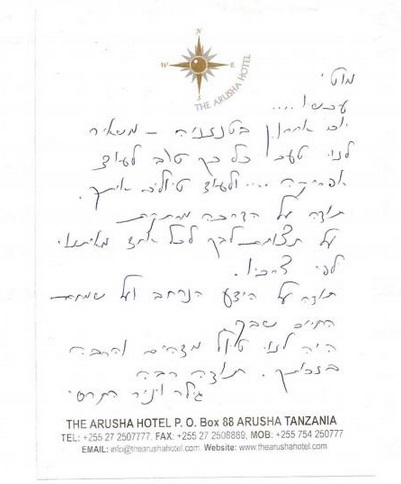 N
W E
S
THE ARUSHA HOTEL
מוטי
עכשו....
יום אחרון בטנזניה - משאיר
לנו טעם כל כך טוב לעוד
אפריקה .... ולעוד טיולים איתך.
תודה על הדרכה מרתקת
על תשומת לבך לכל אחד מאיתנו
לפי צרכיו.
תודה על הידע הנרחב ועל שמחת
החיים שבך
היה לנו טיול מדהים והרבה
בזכותך. תודה רבה
גילה ויניר
THE ARUSHA HOTEL P. O. Box 88 ARUSHA TANZANIA
TEL: +255 27 2507777. FAX: +255 27 2508889, MOB: +255 754 250777
EMAIL: info@thearushahotel.com Website: www.thearushahotel.com